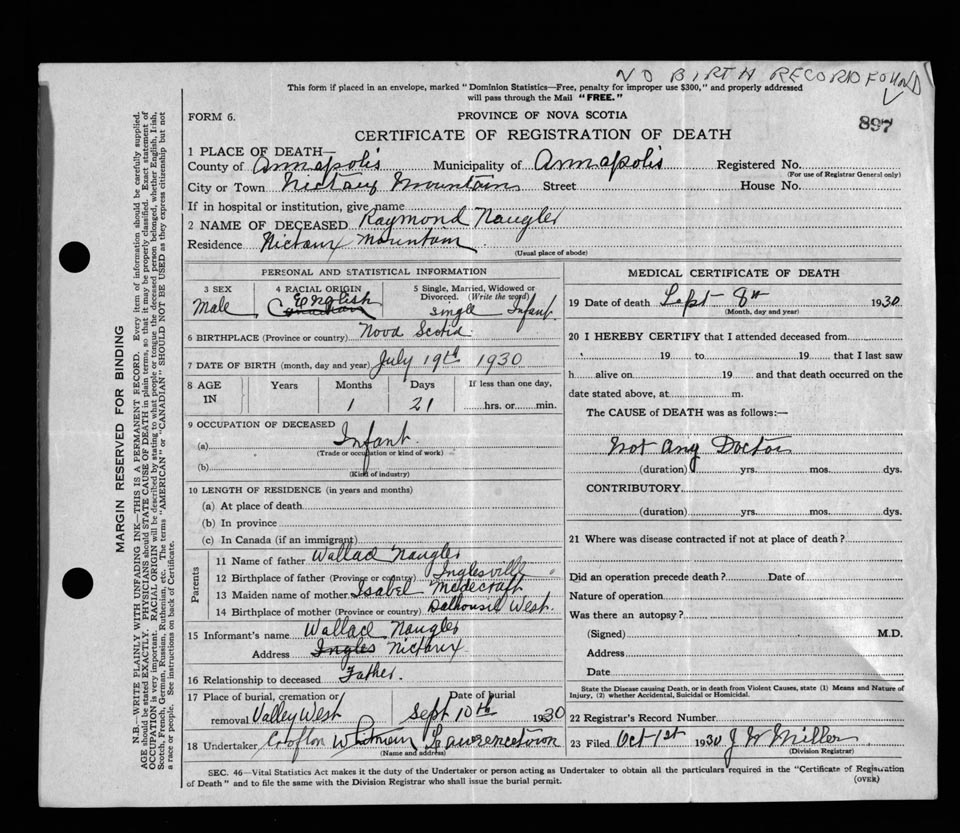 NO BIRTH RECORD FOUND
This form if placed in an envelope, marked "Dominion Statistics—Free, penalty for improper use $300," and properly addressed
will pass through the Mail "FREE."
FORM 6.
PROVINCE OF NOVA SCOTIA
897
CERTIFICATE OF REGISTRATION OF DEATH
1 PLACE OF DEATH—
County of Annapolis Municipality of Annapolis Registered No.
(For use of Registrar General only)
City or Town Nictaux Mountain Street House No.
If in hospital or institution, give name
2 NAME OF DECEASED Raymond Naugler
Residence Nictaux Mountain
(Usual place of abode)
PERSONAL AND STATISTICAL INFORMATION
3 SEX 4 RACIAL ORIGIN 5 Single, Married, Widowed or Divorced. (Write the word)
Male English Canadian single Infant
6 BIRTHPLACE (Province or country) Nova Scotia
7 DATE OF BIRTH (month, day and year) July 19th 1930
8 AGE IN Years Months Days If less than one day,
1 21 hrs. or min.
9 OCCUPATION OF DECEASED
(a) Infant
(Trade or occupation or kind of work)
(b)
(Kind of industry)
10 LENGTH OF RESIDENCE (in years and months)
(a) At place of death
(b) In province
(c) In Canada (if an immigrant)
Parents
11 Name of father Wallace Naugler
12 Birthplace of father (Province or country) Inglesville
13 Maiden name of mother Isabel Medicraft
14 Birthplace of mother (Province or country) Dalhousie West.
15 Informant's name Wallace Naugler
Address Ingles Nictaux
16 Relationship to deceased Father.
17 Place of burial, cremation or Date of burial
removal Valley West Sept 10th 1930
18 Undertaker Whitman Lawrencetown
(Name and address)
MEDICAL CERTIFICATE OF DEATH
19 Date of death Sept 8th 1930
(Month, day and year)
20 I HEREBY CERTIFY that I attended deceased from
19 to 19 that I last saw
h alive on 19 and that death occurred on the
date stated above, at m.
The CAUSE of DEATH was as follows:—
Not Any Doctor
(duration) yrs. mos. dys.
CONTRIBUTORY
(duration) yrs. mos. dys.
21 Where was disease contracted if not at place of death?
Did an operation precede death? Date of
Nature of operation
Was there an autopsy?
(Signed) M.D.
Address
Date
State the Disease causing Death, or in death from Violent Causes, state (1) Means and Nature of
Injury, (2) whether Accidental, Suicidal or Homicidal.
22 Registrar's Record Number
23 Filed Oct 1st 1930 J W Miller
(Division Registrar)
SEC. 46—Vital Statistics Act makes it the duty of the Undertaker or person acting as Undertaker to obtain all the particulars required in the "Certificate of Registration
of Death" and to file the same with the Division Registrar who shall issue the burial permit.
(OVER)
MARGIN RESERVED FOR BINDING
N.B.—WRITE PLAINLY WITH UNFADING INK—THIS IS A PERMANENT RECORD. Every item of information should be carefully supplied.
AGE should be stated EXACTLY. PHYSICIANS should STATE CAUSE OF DEATH in plain terms, so that it may be properly classified. Exact statement of
OCCUPATION is very important. RACIAL ORIGIN will be described by stating to what people or tongue the deceased person belonged, whether English, Irish,
Scotch, French, German, Russian, Ruthenian, etc. The terms "AMERICAN" or "CANADIAN" SHOULD NOT BE USED as they express citizenship but not
a race or people. See instructions on back of Certificate.